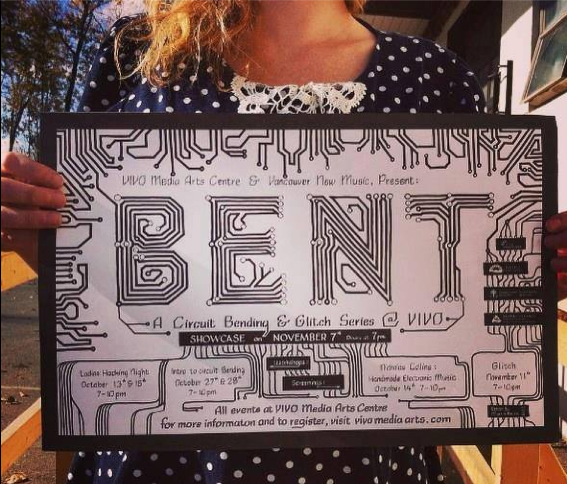 VIVO Media Arts Centre & Vancouver New Music, Present:
BENT
A Circuit Bending & Glitch Series @ VIVO
SHOWCASE on NOVEMBER 7th Doors at 7pm
Workshops
Screenings
Ladies Hacking Night
October 13th & 15th
7-10pm
Intro to circuit Bending
October 27th & 28th
7-10pm
Handmade Electronic Music
October 14th 7-10pm
Glitch
November 11th
7-10pm
All events at VIVO Media Arts Centre
for more informaton and to register, visit vivomediaarts.com